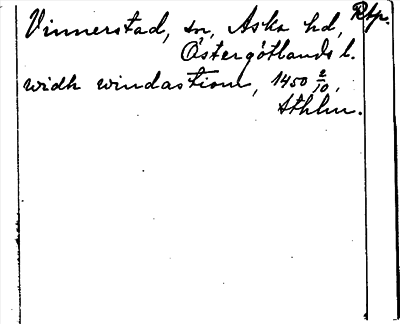 Vinnerstad, sn, Aska hd, Rtp.
Östergötlands l.
widh windastiom, 1450 2/10,
Sthlm.